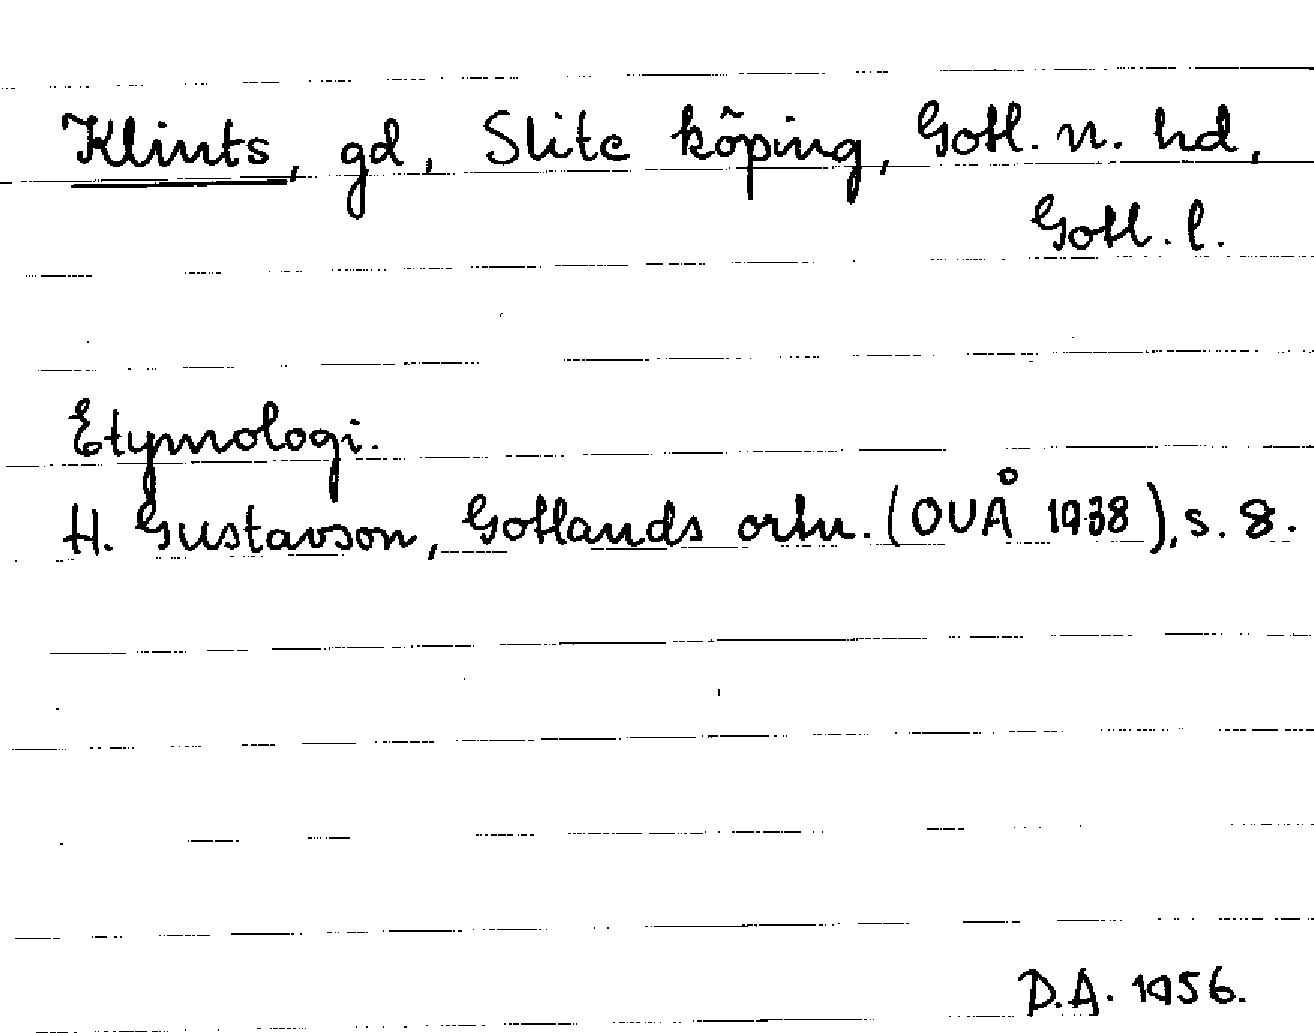 Klints, gd, Slite köping, Gotl. n. hd,
Gotl. l.
Etymologi.
H. Gustavson, Gotlands ortn. (OUÅ 1938), s. 8.
D.A. 1956.